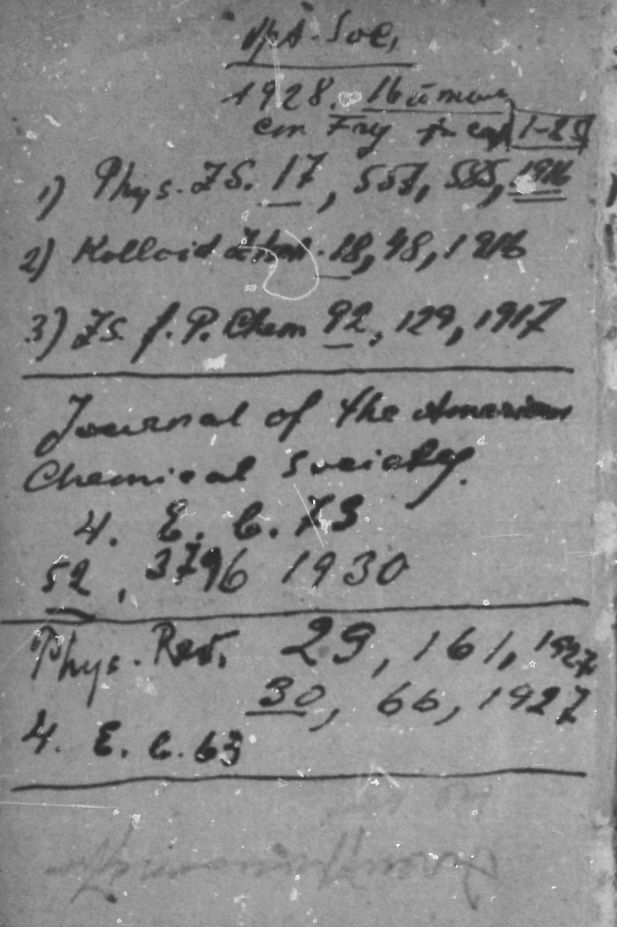 Soc.
1928. 16
Fry 1-85
1) Phys. ZS. 17, 557, 585, 1916
2) Kolloid 18, 48, 1916
3) ZS. f. P. Chem 92, 129, 1917
Journal of the American
Chemical Society.
4. E. C. 73
52, 3796 1930
Phys. Rev. 29, 161, 1927
30, 66, 1927
4. E. C. 63